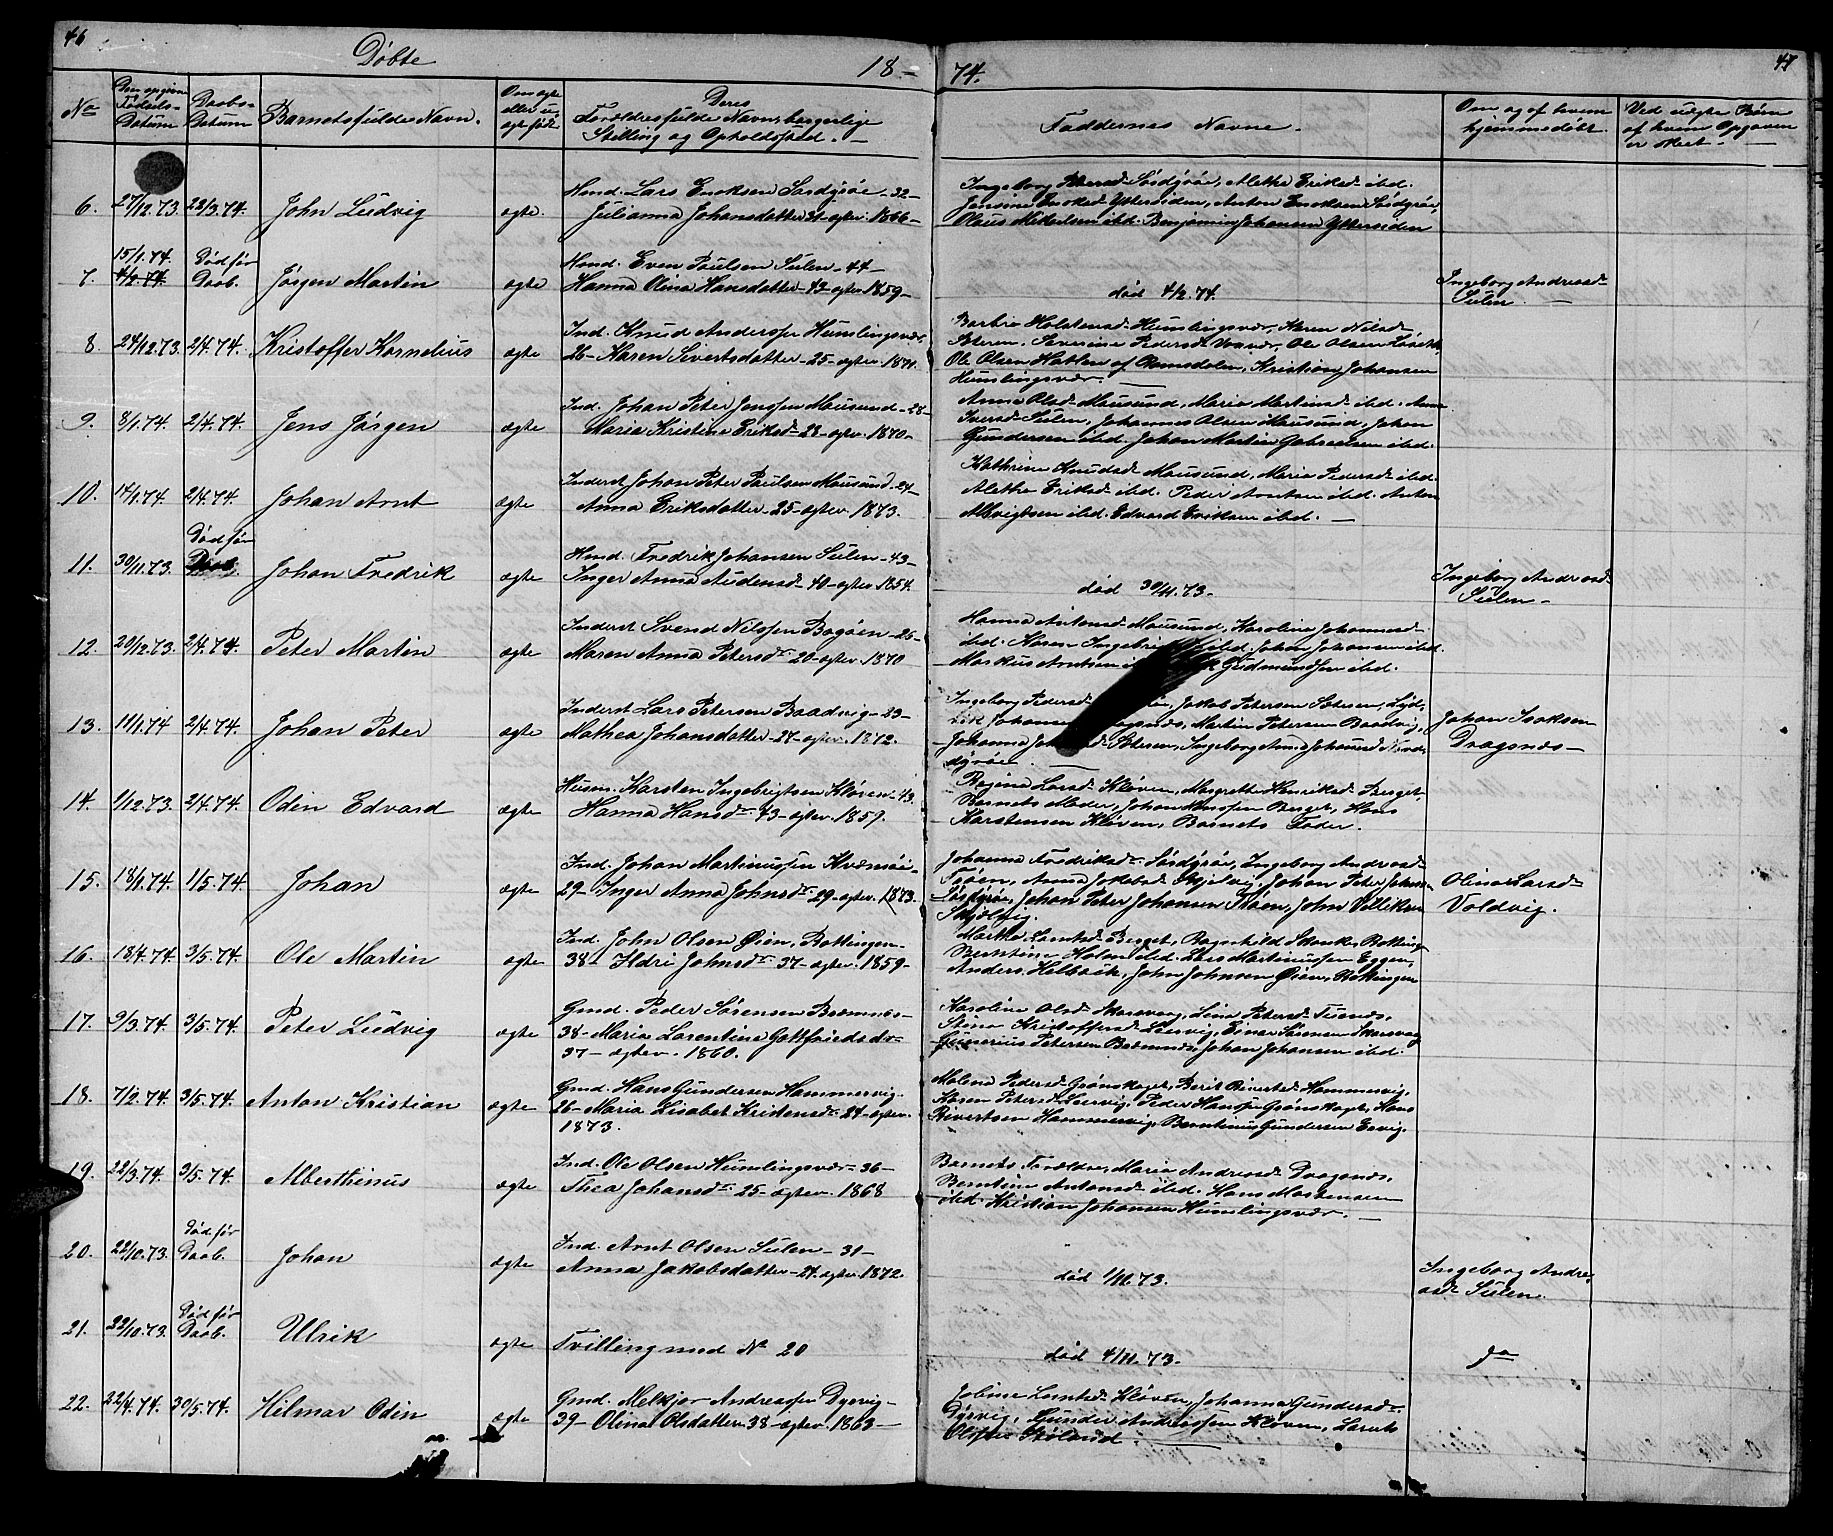 46
Døbte
18-
74.
47
No
Den opgivne Fødsels-Datum
Daabs-Datum
Barnets fulde Navn.
Om ægte eller uægte født
Deres Forældres fulde Navn, borgerlige Stilling og Opholdssted. -
Faddernes Navne.
Om og af hvem hjemmedøbt.
Ved uægte Børn af hvem Opgaven er skeet. -
6. 27/12.73. 22/3.74. John Ludvig ægte.
Hmd. Lars Enoksen Sørdyrøe - 32 -
Julianna Johansdatter 31 - ægtev. 1866 -
Ingeborg Petersd. Sørdyrøe, Alethe Eriksd. ibd.
Jensine Enoksd. Yttersiden, Anton Enoksen Sørdyrøe,
Olaus Mikkelsen ibd. Benjamin Johansen Yttersiden
7. 15/1.74. 4/2.74 Død før Daab. Jørgen Martin ægte
Hmd. Even Paulsen Sulen - 44 -
Hanna Olina Hansdatter - 43 - ægtev. 1859 -
død 4/2.74.
Ingeborg Andreasd. Sulen
8. 24/12.73. 2/4.74. Kristoffer Kornelius ægte
Ind. Knud Anderssen Humlingsvær,
26 - Karen Sivertsdatter - 25 - ægtev. 1871.
Barbro Holstensd. Humlingsvær, Karen Nilsd.
Severine Pedersd. Vær, Ole Olsen
Ole Olsen Hatlen af Romsdalen, Kristian Johansen
Humlingsvær. -
9. 8/1.74. 2/4.74. Jens Jørgen ægte
Ind. Johan Peter Jenssen Mausund - 28 -
Maria Kristine Eriksd. - 28 - ægtev. 1870 -
Anna Olsd. Mausund, Maria Martinsd. ibd. Anne
Iversd. Sulen, Johannes Olsen Mausund, Johan
Gundersen ibd. Johan Martin Gabrielsen ibd.
10. 17/1.74 2/4.74. Johan Arnt ægte
Inderst Johan Peter Paulsen Mausund - 24 -
Anna Eriksdatter - 25 - ægtev. 1873.
Kathrine Knudsd. Mausund, Maria Pedersd. ibd.
Alethe Eriksd. ibd. Peder Arntsen ibd. Anton
Albrigtsen ibd. Edvard Eriksen ibd. -
11. 30/11.73. Død før Daab. Johan Fredrik ægte
Hmd. Fredrik Johansen Sulen - 43 -
Inger Anna Audensd. - 40 - ægtev. 1854.
død 30/11.73.
Ingeborg Andreasd. Sulen -
12 20/12.73. 2/4.74. Peter Martin ægte
Inderst Svend Nilssen Bogøen - 26 -
Maren Anna Petersd. 20 - ægtev. 1870
Hanna Antonsd. Mausund, Karoline Johannesd.
ibd. Karen ibd. Johan Johansen ibd.
Markus Arntsen Gudmundsen ibd.
13. 11/1.74 2/4.74. Johan Peter ægte
Inderst Lars Petersen Baadvig - 23 -
Mathea Johansdatter - 27 - ægtev. 1872.
Ingeborg Pedersd. Jakob Petersen
Johansen Dragsnæs, Martin Petersen Baadvig,
Johanna Ingeborg Anna Johansd. Nor-
dyrøe. -
Johan Isaksen Dragsnæs -
14. 1/12.73. 2/4.74. Odin Edvard ægte
Husm. Karsten Ingebrigtsen Kløven - 43.
Hanna Hansd. 43 - ægtev. 1859.
Regine Larsd. Kløven, Margrethe Henriksd. Berget,
Barnets Moder, Johan Hanssen Berget, Hans
Karstensen Kløven, Barnets Fader.
15. 18/1.74. 1/5.74 Johan ægte
Ind. Johan Martinussen Kværnøe -
29 - Inger Anna Johnsd. 29 - ægtev. 1873.
Johanna Fredriksd. Sørdyrøe, Ingeborg Andreasd.
Anna Jakobsd. Skjelvig, Johan Peter Johans.
Sørdyrøe, Johan Peter Johansen John Villiksen
Skjelvig.
Olina Larsd. Valdvig.
16. 18/4.74. 3/5.74. Ole Martin ægte
Ind. John Olsen Øien, Bottingen -
38 - Ildri Johnsd. 37 - ægtev. 1859 -
Marthe Larntsd. Berget, Ragnhild Skanke, Botting
Berntine Holm ibd. Lars Martinussen Eggen,
Anders Holbæk, John Johnsen Øien, Bottingen
17. 9/3.74. 3/5.74. Peter Ludvig ægte
Gmd. Peder Sørensen Bræmnes -
38 - Maria Larentine Gottfriedsdr.
37 - ægtev. 1860.
Karoline Olsd. Skarsvaag, Lina Petersd. Tusnæs,
Stina Kristoffersd. Lervig, Einar Sørensen Skarsvaag
Gunerius Petersen Bræmnes, Johan Johansen ibd.
18. 7/2.74. 3/5.74. Anton Kristian ægte
Gmd. Hans Gundersen Hammervig -
26 - Maria Lisabet Kristensd. 24 - ægtev.
1873.
Malena Pedersd. Grønskaget, Berit Sivertsd. Hammervig,
Karen Petersd. Lervig, Peder Hansen Grønskaget, Hans
Sivertsen Hammervig, Berntinus Gundersen Esvig.
19. 22/3.74. 3/5.74. Alberthinus ægte
Ind. Ole Olsen Humlingsvær - 36 -
Thea Johansd. 25 - ægtev. 1868
Barnets Forældre, Maria Andreasd. Dragsnæs,
Berntine Antonsd. ibd. Hans Mortensen
ibd. Kristian Johansen Humlingsvær. -
20. 22/10.73. Død før Daab. Johan ægte
Ind. Arnt Olsen Sulen - 31 -
Anna Jakobsdatter - 24. ægtev. 1872.
død 1/11.73.
Ingeborg Andreasd. Sulen.
21. 22/10.73. Død før Daab. Ulrik ægte
Tvilling med No 20
død 4/11.73.
do
22. 22/4.74. 30/5.74. Hilmar Odin ægte
Gmd. Melkjor Andreassen Dyrvig -
39 - Olina Olsdatter 38 - ægtev. 1863 -
Jobine Larntsd. Kløven, Johanna Gundersd.
Dyrvig, Gunder Andreassen Kløven, Larnts